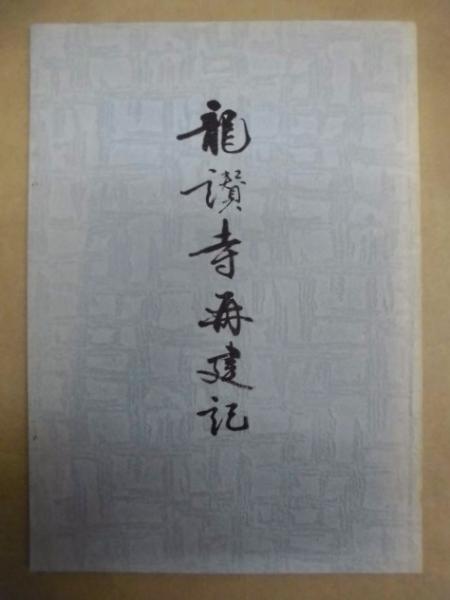 龍讃寺再建記